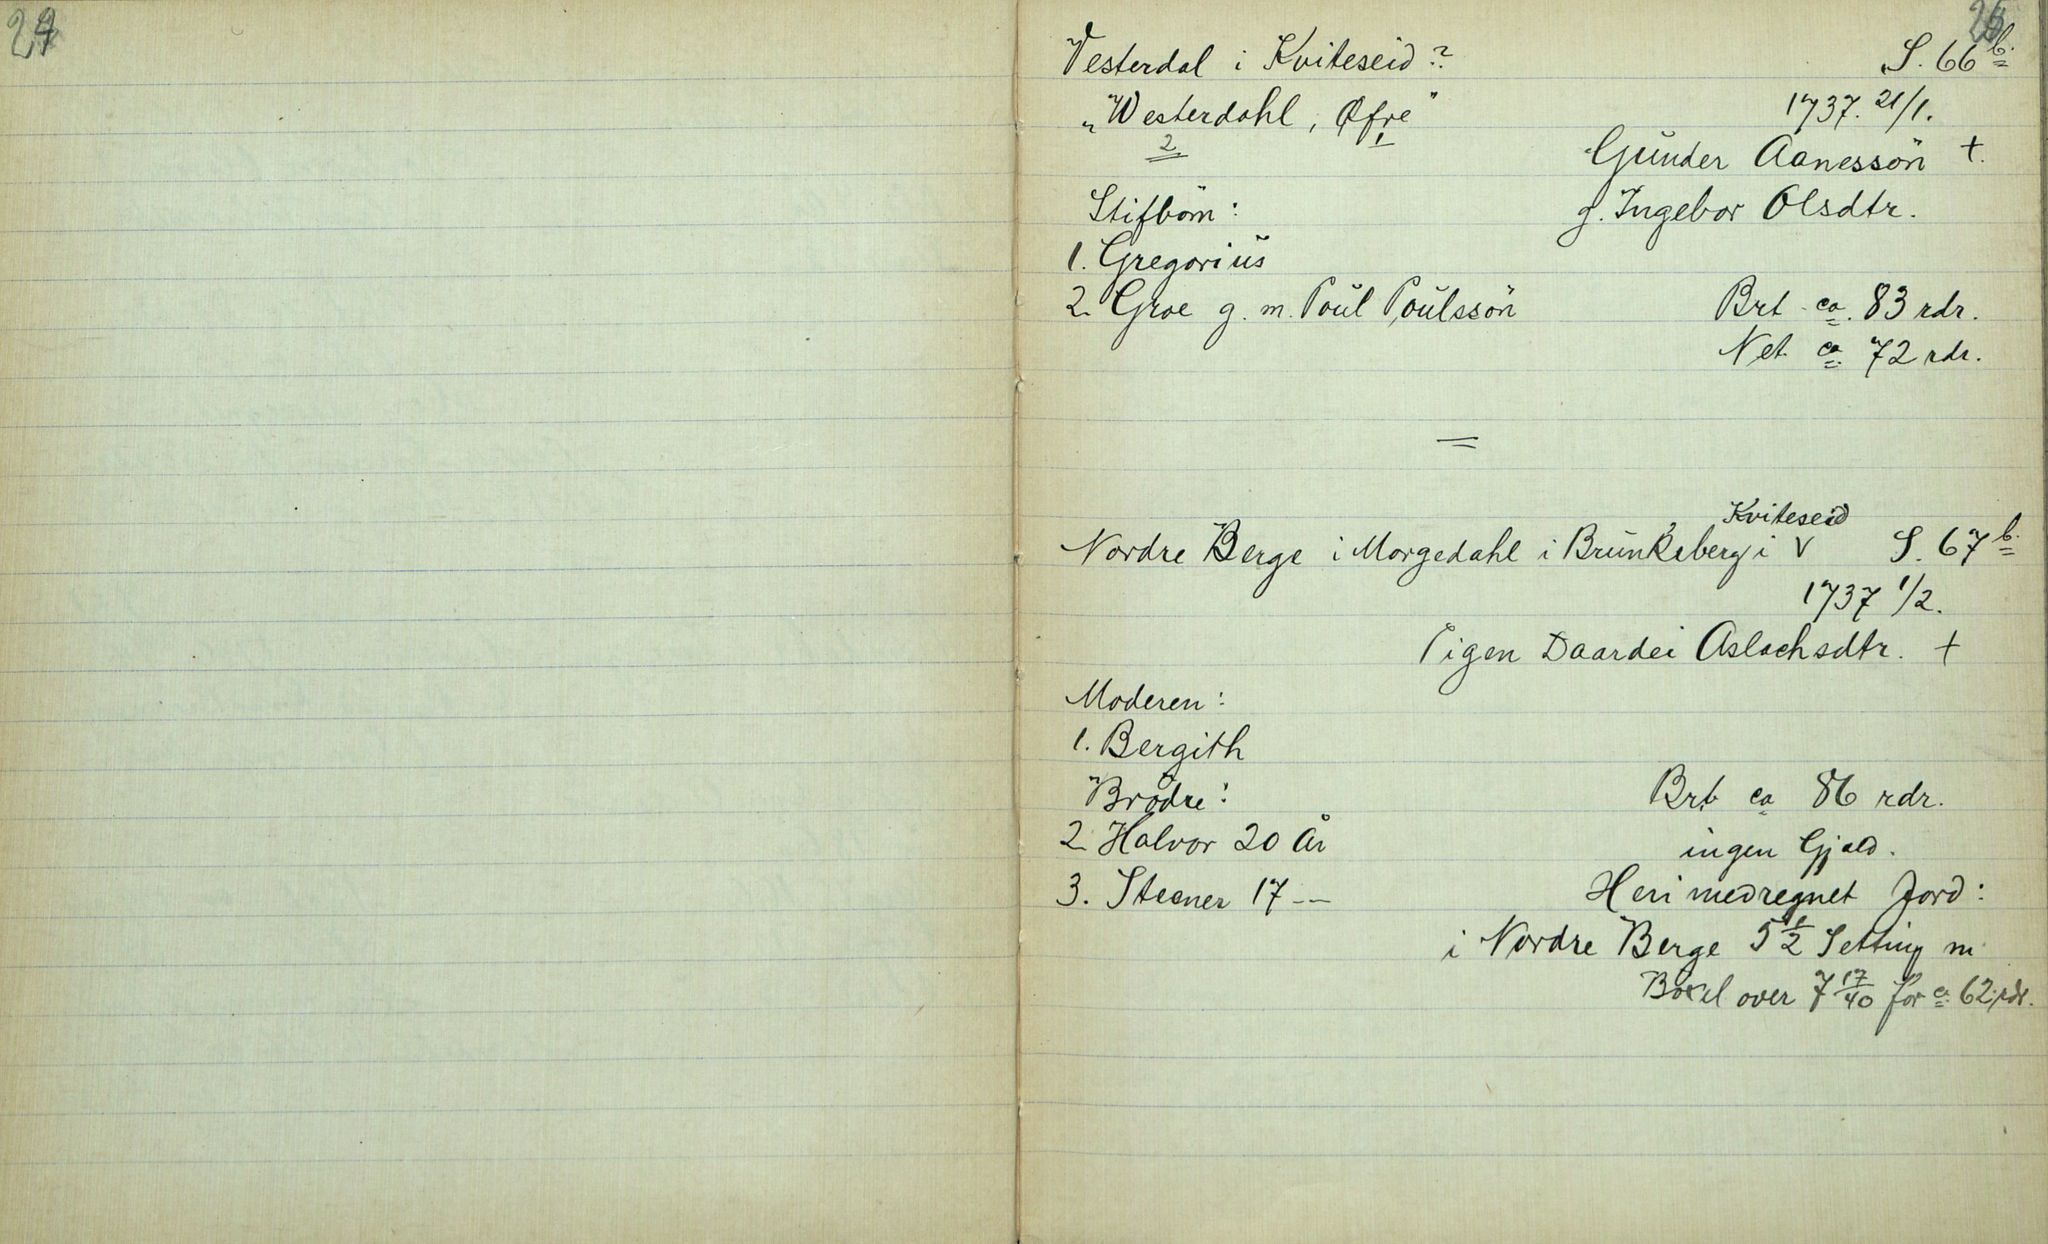 24
25
Vesterdal i Kviteseid? S. 66 b.
"Westerdahl, Øfre" 1737. 21/1.
2 1
Gunder Aanessön +.
Stifbörn: g. Ingebor Olsdtr.
1. Gregorius
2. Groe g. m. Poul Poulssön Brt ca. 83 rdr.
Net ca. 72 rdr.
Kviteseid
Nordre Berge i Morgedahl i Brunkeberg i V S. 67 b.
1737 1/2.
Pigen Daardei Aslachsdtr. +
Moderen:
1. Bergith
Brödre: Brt ca 86 rdr.
2. Halvor 20 År ingen Gjæld.
3. Steener 17 -- Heri medregnet Jord:
i Nordre Berge 5 1/2 Setting m
Böxel over 7 17/40 for ca. 62 rdr.